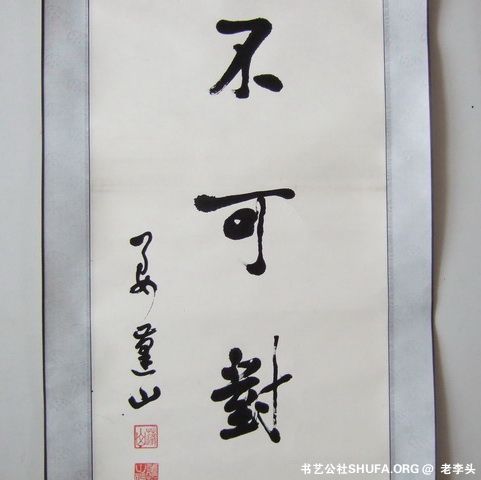 不可對
姜蓮山
书艺公社SHUFA.ORG @ 老李头